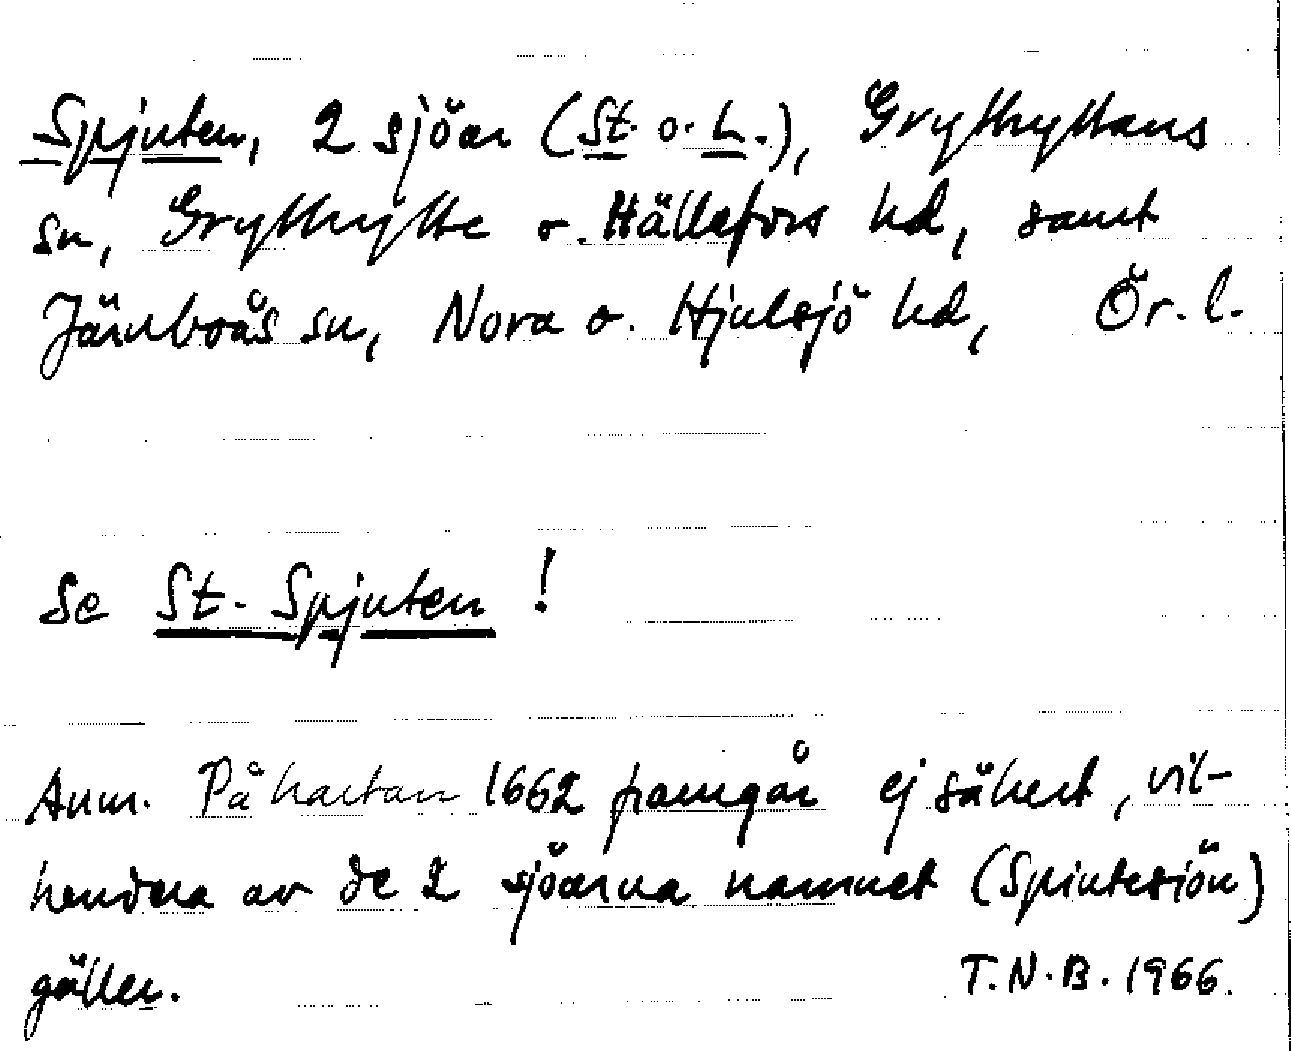 Spjuten, 2 sjöar (St. o. L.), Grythyttans
sn, Grythytte o. Hällefors hd, samt
Järnboås sn, Nora o. Hjulsjö hd, Ör. l.
Se St. Spjuten !
Anm. På kartan 1662 framgår ej säkert, vil-
kendera av de 2 sjöarna namnet (Spiutesiön)
gäller. T.N.B. 1966.